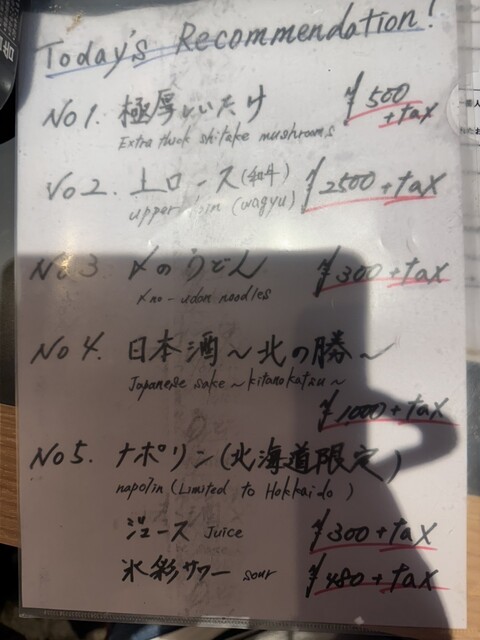 Today's Recommendation!
No 1. 極厚しいたけ ¥500 +tax
Extra thick shitake mushrooms
No 2. 上ロース(和牛) ¥2500+tax
upper loin (wagyu)
No 3 〆のうどん ¥300+tax
〆no-udon noodles
No 4. 日本酒〜北の勝〜
Japanese sake ~kitanokatsu~
¥1,000+tax
No 5. ナポリン(北海道限定)
napolin (Limited to Hokkaido)
ジュース Juice ¥300+tax
氷彩サワー sour ¥480+tax